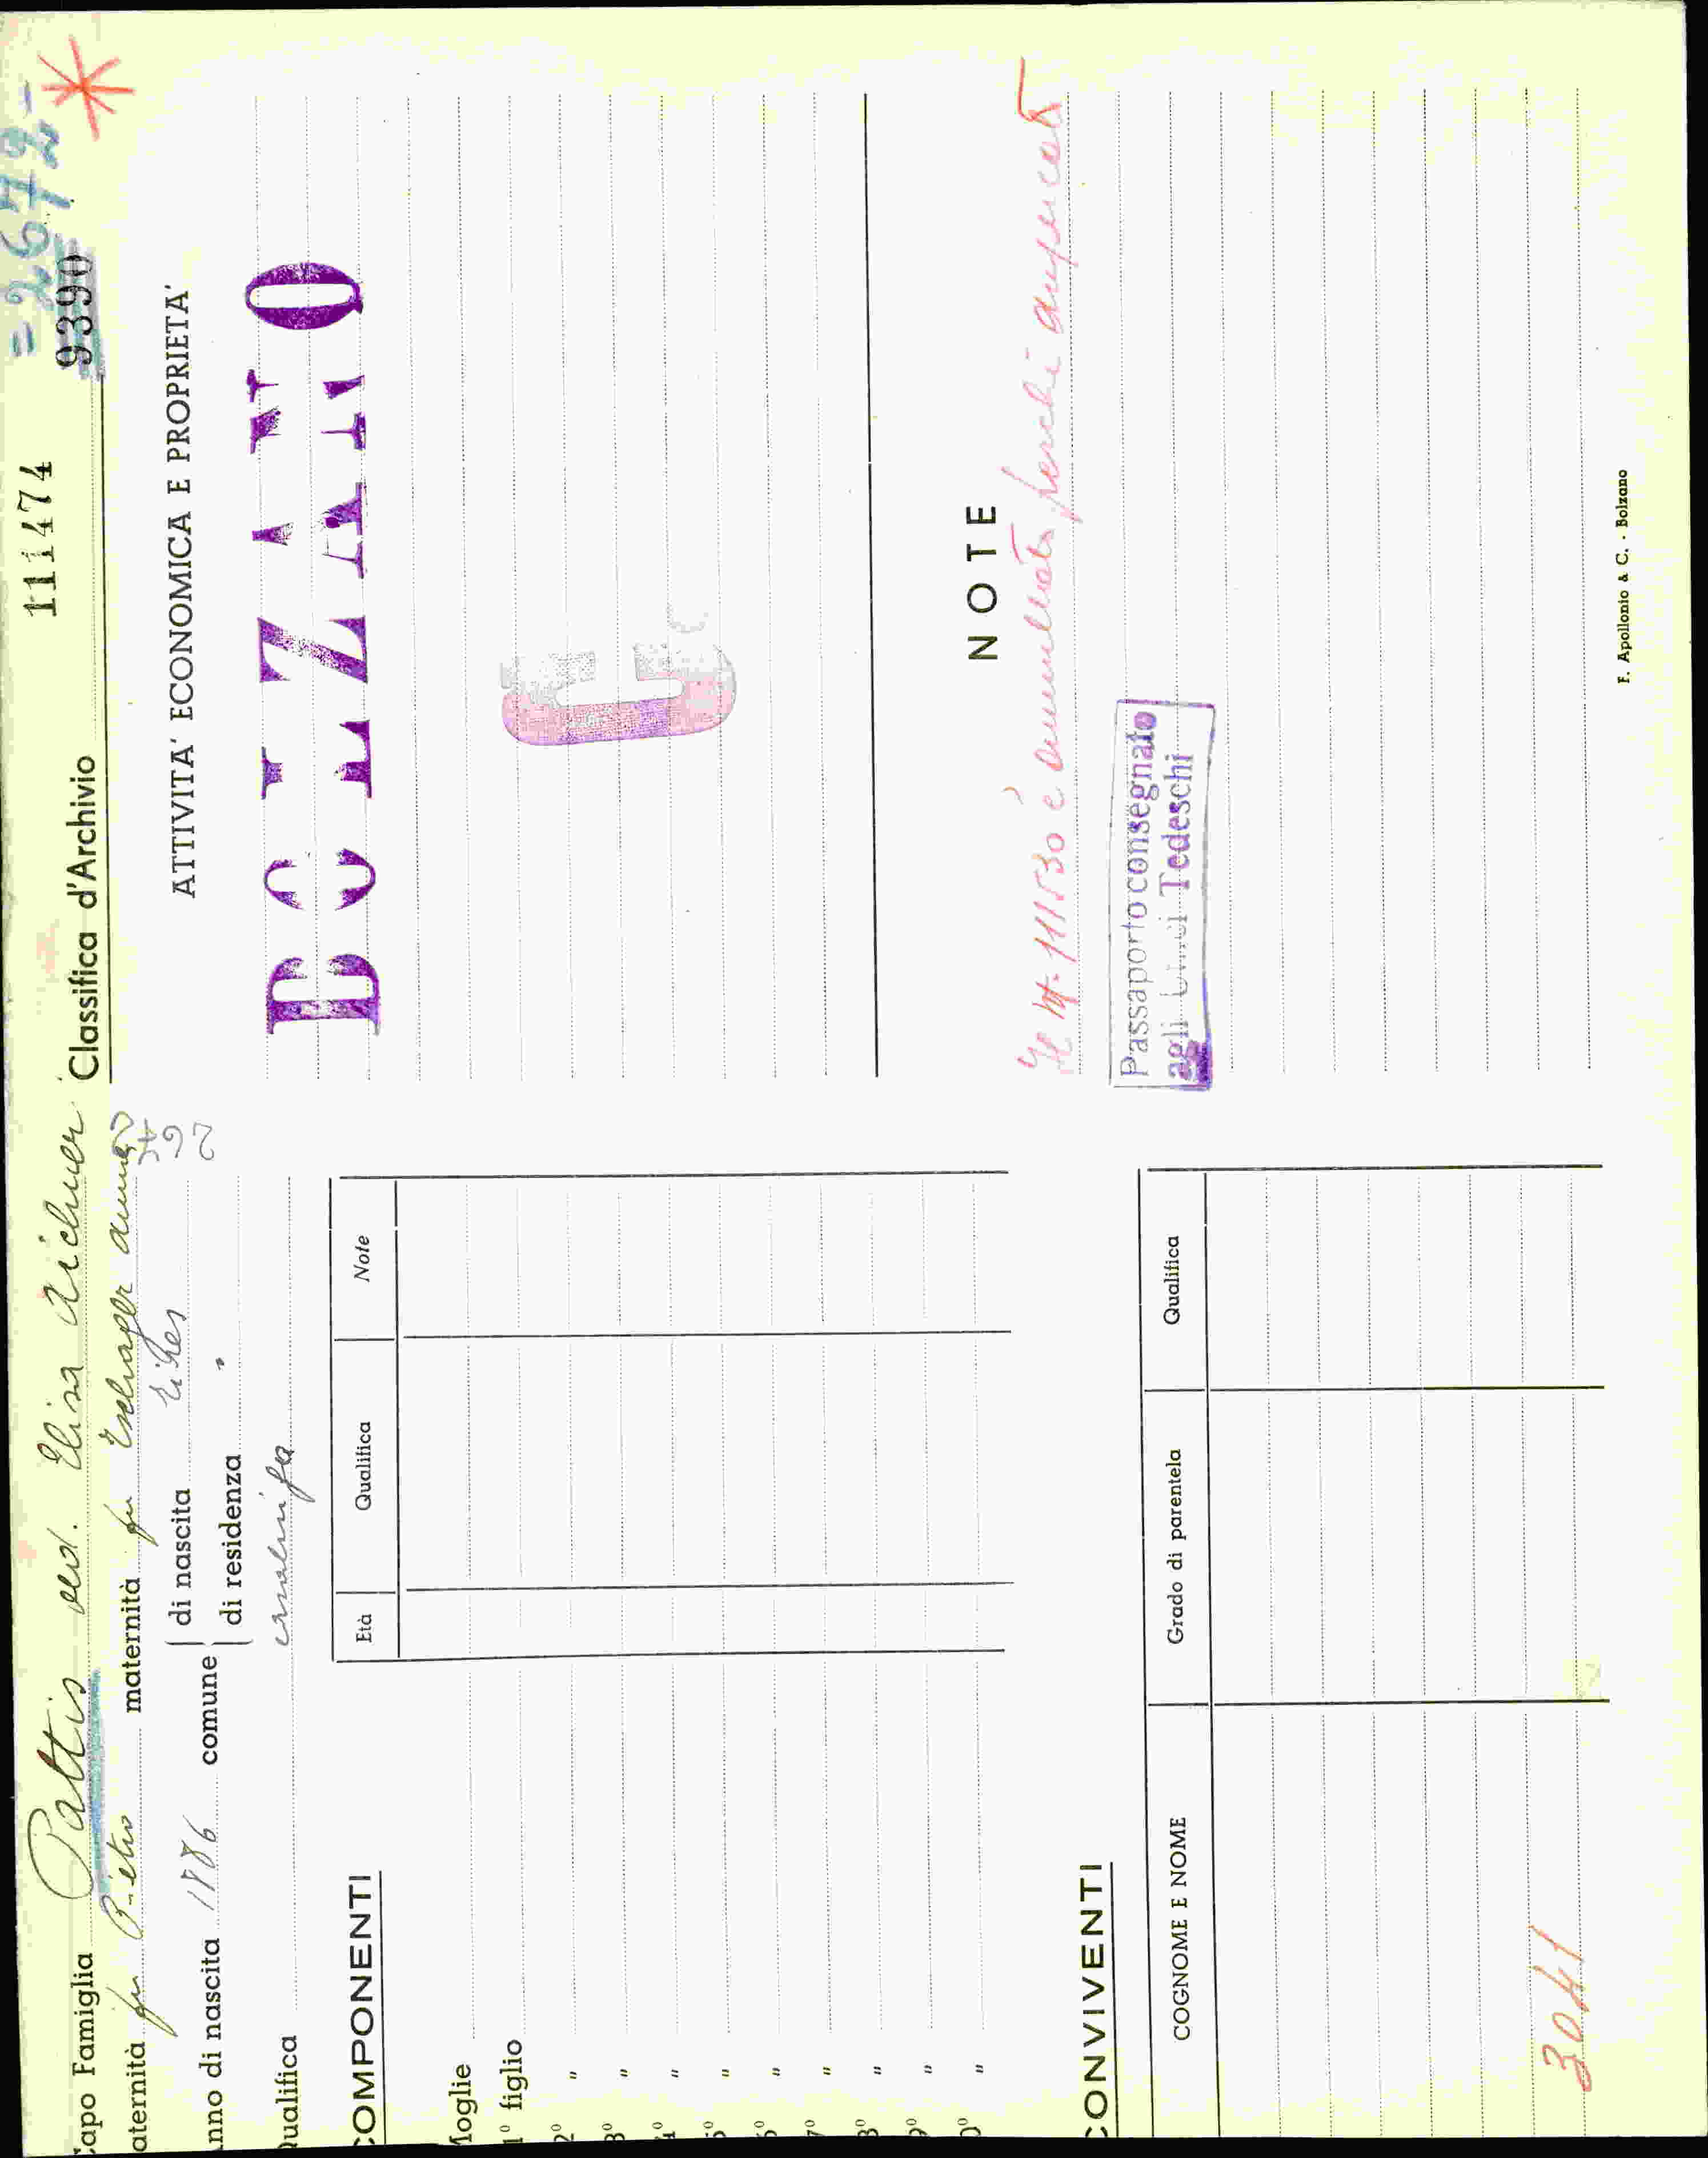 = 2672 -
111474
9390
Capo Famiglia Pattis ved. Elisa Aichner Classifica d'Archivio
aternità fu Pietro maternità fu
nno di nascita 1886 comune
di nascita
di residenza "
3492
ualifica casalinga
ATTIVITA' ECONOMICA E PROPRIETA'
BOLZANO
COMPONENTI
Età Qualifica Note
Moglie
1° figlio
2° "
3° "
4° "
5° "
6° "
7° "
8° "
9° "
0° "
NOTE
Il N. 111530 è annullato perchè
Passaporto consegnato
agli Uffici Tedeschi
CONVIVENTI
COGNOME E NOME Grado di parentela Qualifica
3041
F. Apollonio & C. - Bolzano